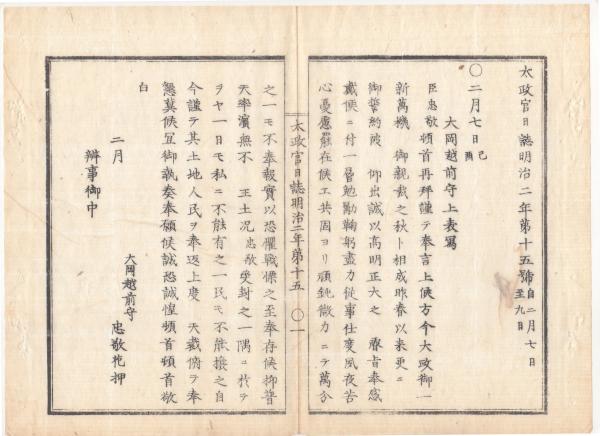 太政官日誌明治二年第十五號 自二月七日 至九日
〇二月七日 己酉
大岡越前守上表寫
臣忠敬頓首再拜謹テ奉言上候方今大政御一
新萬機 御親裁之秋ト相成昨春以來更ニ
御誓約被 仰出誠以高明正大之 睿旨奉感
戴候ニ付一層勉勵鞠躬盡力從事仕度夙夜苦
心憂慮罷在候エ共固ヨリ頑鈍微力ニテ萬分
太政官日誌明治二年第十五 〇一
之一モ不奉報實以恐懼戰慄之至奉存候抑普
天率濱無不 王土況忠敬受封之一隅ニ於テ
ヲヤ一日モ私ニ不能有之一民モ不能擅之自
今謹テ其土地人民ヲ奉返上度 天裁偏ヲ奉
懇冀候宜御執奏奉願候誠恐誠惶頓首頓首敬
白
二月
大岡越前守
忠敬花押
辨事御中